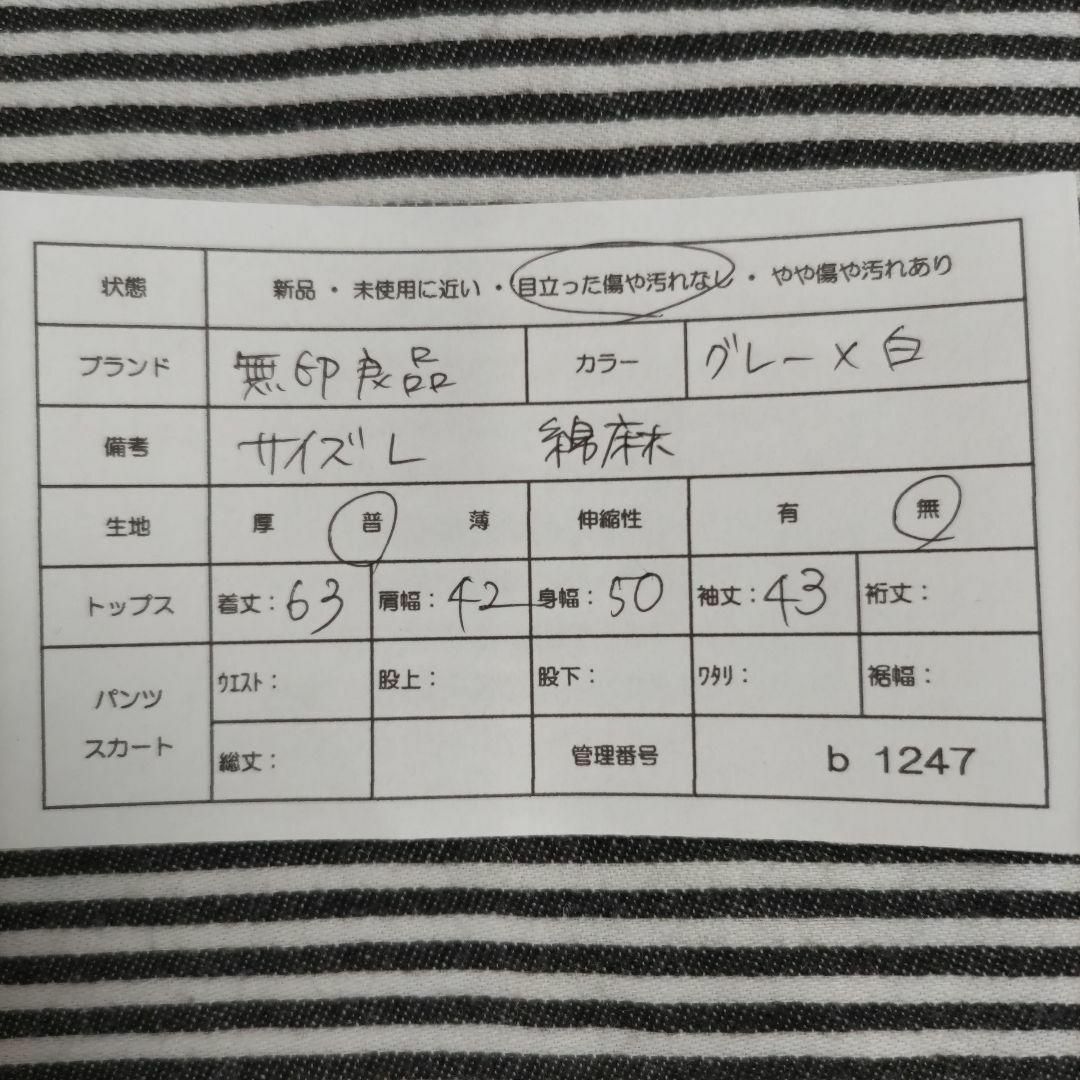 状態 新品・未使用に近い・目立った傷や汚れなし・やや傷や汚れあり
ブランド 無印良品 カラー グレー×白
備考 サイズL 綿麻
生地 厚 普 薄 伸縮性 有 無
トップス 着丈:63 肩幅:42 身幅:50 袖丈:43 裄丈:
パンツ スカート ウエスト: 股上: 股下: ワタリ: 裾幅:
総丈: 管理番号 b 1247